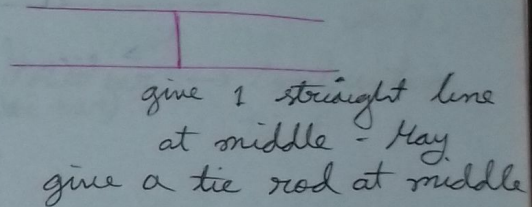 give 1 straight line
at middle - May
give a tie rod at middle